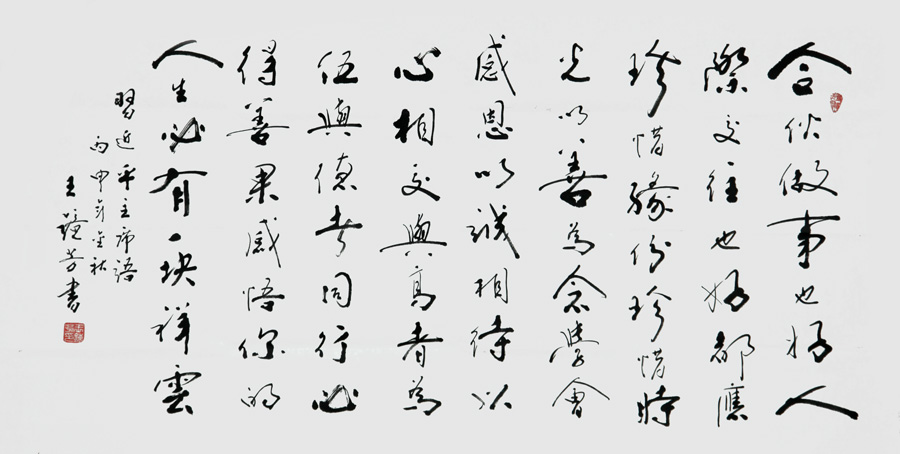 合伙做事也好人
際交往也好都應
珍惜緣份珍惜時
光以善為念學會
感恩以誠相待以
心相交與高者為
伍與德者同行必
得善果感悟你的
人生必有一块祥雲
習近平主席語
丙申年金秋
王芳書